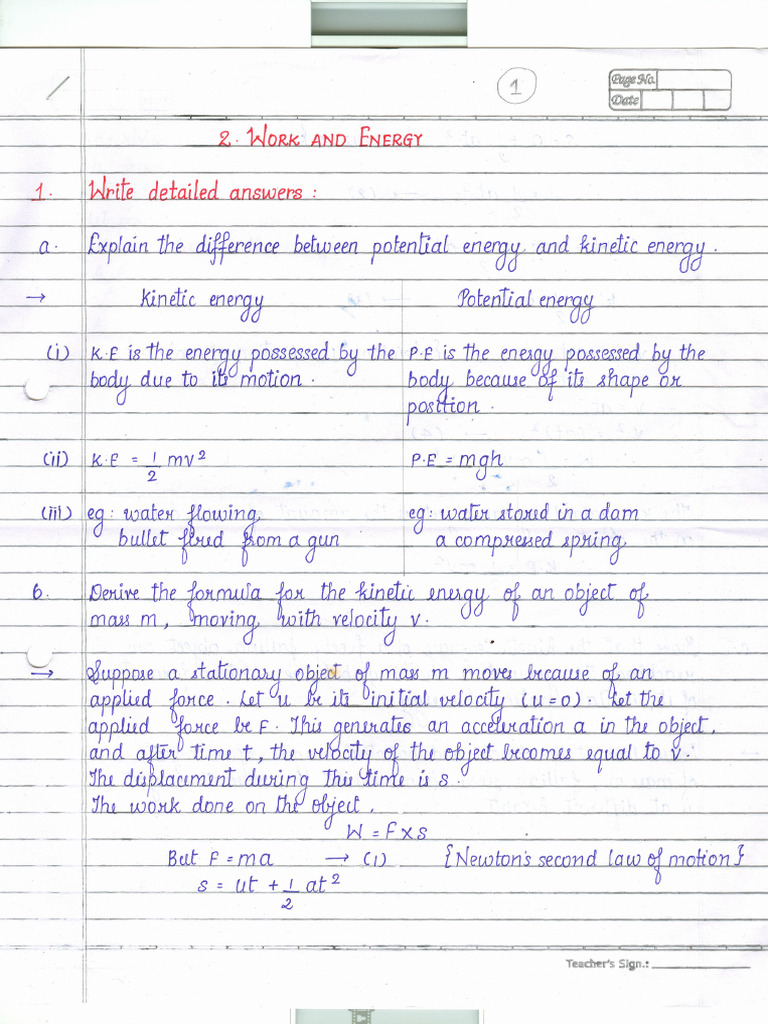 1
Page No.
Date
2. WORK AND ENERGY
1. Write detailed answers :
a. Explain the difference between potential energy and kinetic energy.
→ Kinetic energy Potential energy
(i) K.E is the energy possessed by the P.E is the energy possessed by the
body due to its motion. body because of its shape or
position.
(ii) K.E = 1/2 mv² P.E = mgh
(iii) eg: water flowing, eg: water stored in a dam
bullet fired from a gun a compressed spring.
b. Derive the formula for the kinetic energy of an object of
mass m, moving with velocity v.
→ Suppose a stationary object of mass m moves because of an
applied force. Let u be its initial velocity (u=0). Let the
applied force be F. This generates an acceleration a in the object,
and after time t, the velocity of the object becomes equal to v.
The displacement during this time is s.
The work done on the object,
W = F×s
But F = ma → (1) {Newton's second law of motion}
s = ut + 1/2 at²
Teacher's Sign.: